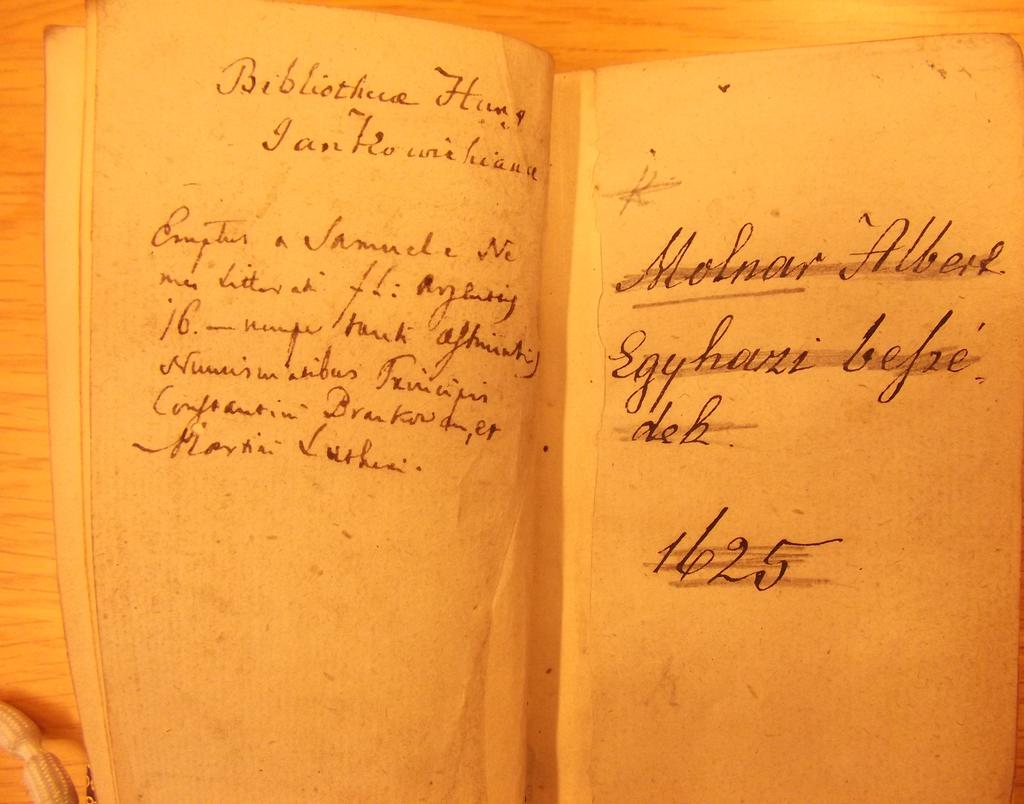 Bibliothecæ Hung
Jankowichianæ
Emptus a Samuele Ne
mes Litterati fl:
16. — nempe tanti
Numismatibus Principis
Constantini Brankovan, et
Martini Lutheri.
Molnar Albert
Egyhazi beſzé-
dek.
1625